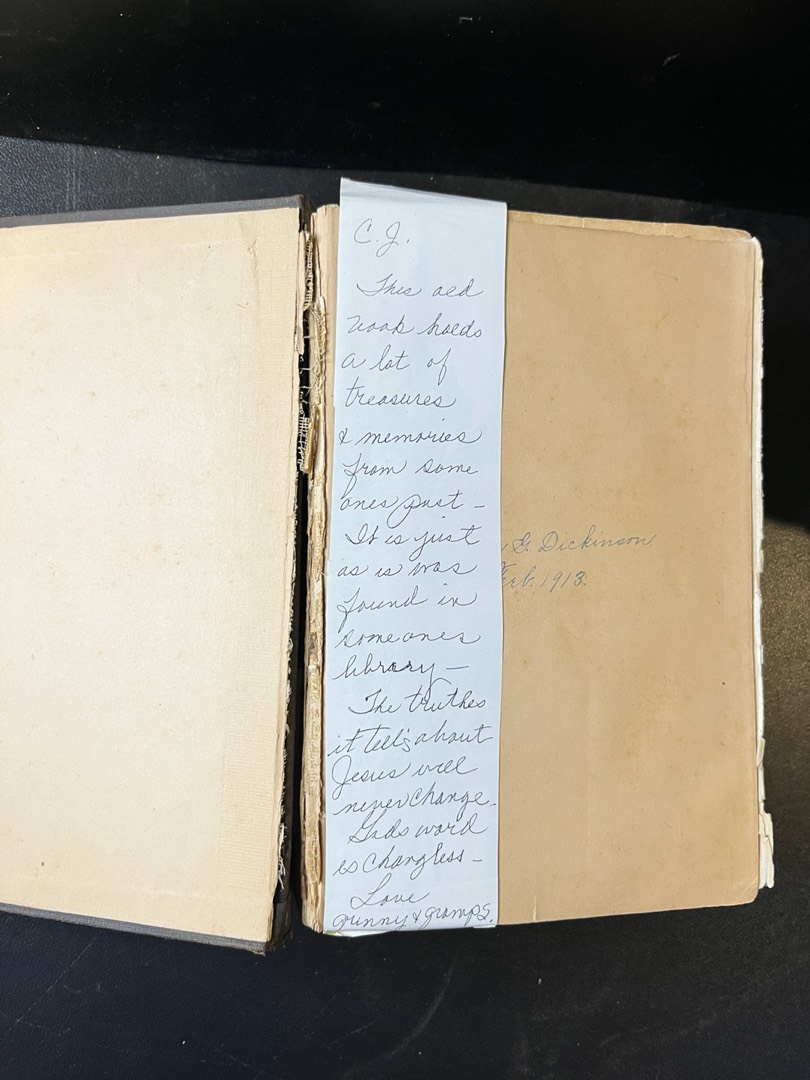 C.J.
This old
book holds
a lot of
treasures
& memories
from some
ones past -
It is just
as is was
found in
someones
library -
The truthes
it tell's about
Jesus will
never change -
Gods word
is changless -
Love
Grinny & Gramps.
G. Dickinson
Feb. 1913.